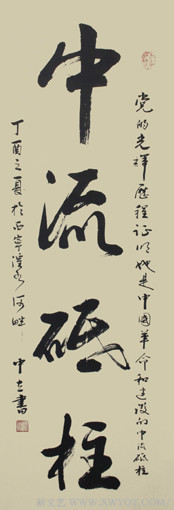 党的光辉历程证明她是中国革命和建设的中流砥柱
中流砥柱
丁酉之夏於西宁湟水河畔
中立書